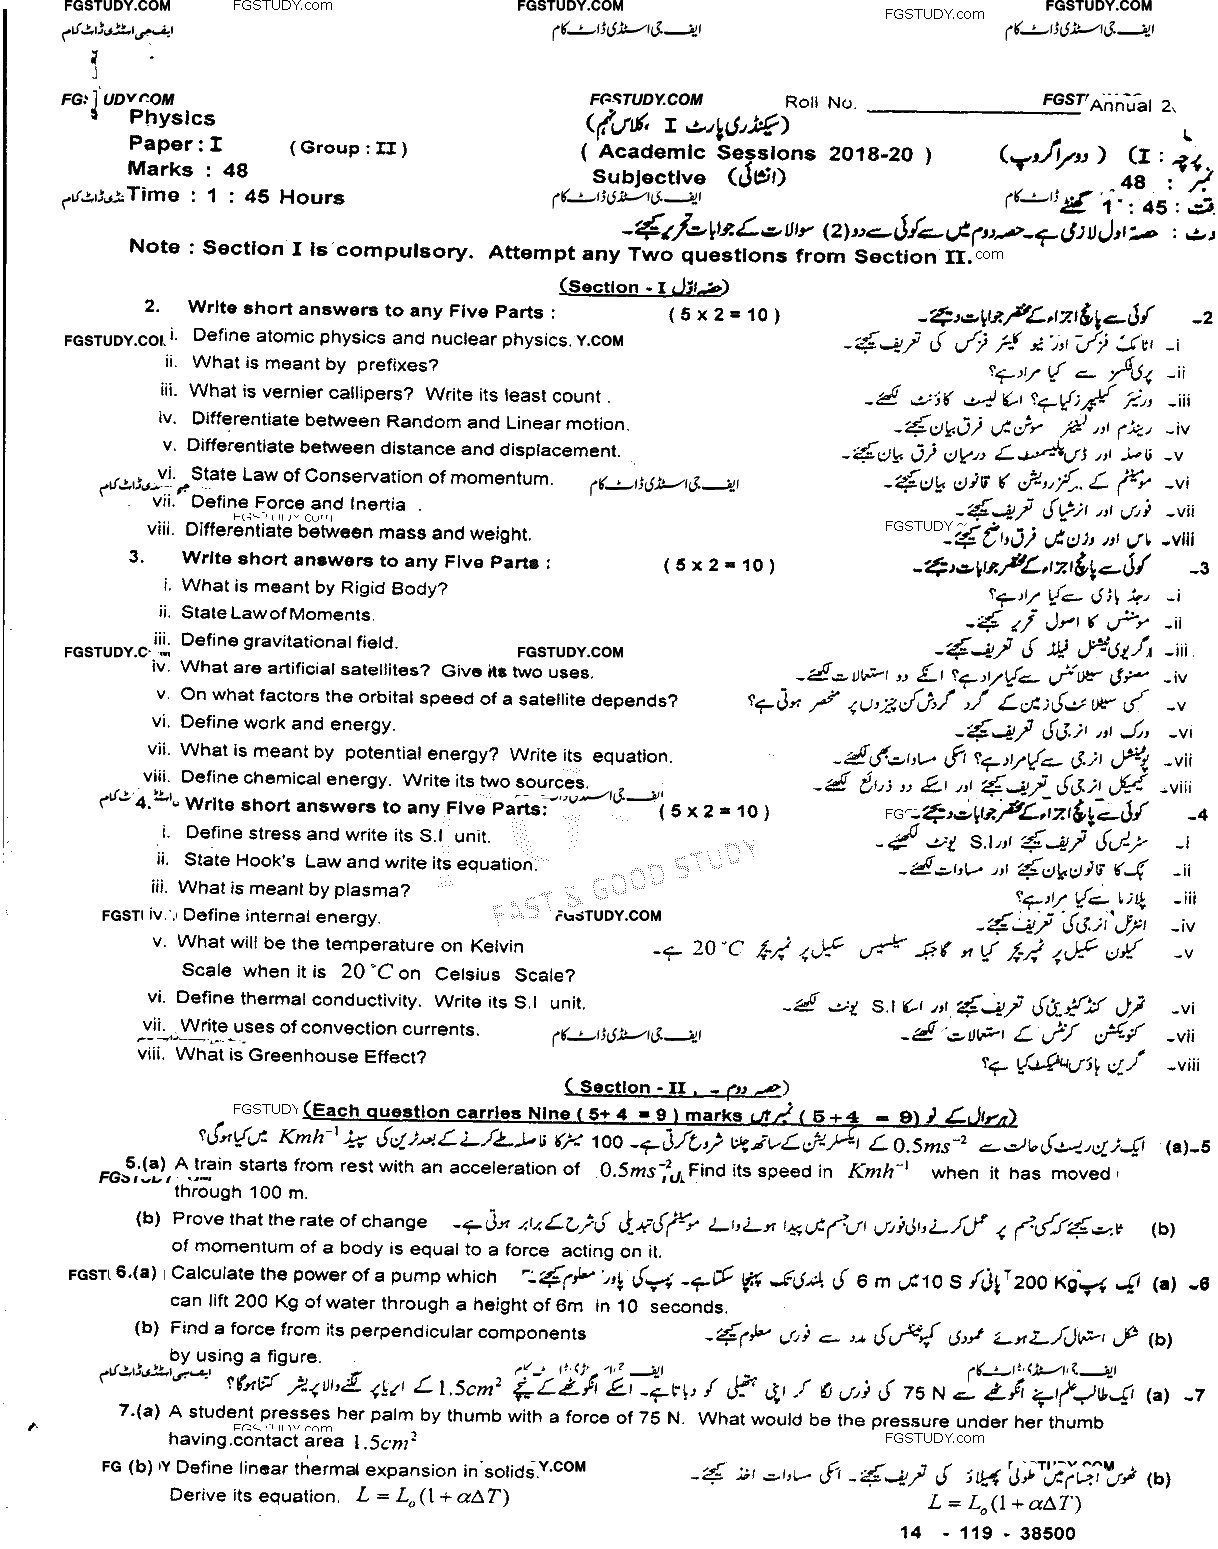 FGSTUDY.COM FGSTUDY.com FGSTUDY.COM FGSTUDY.com FGSTUDY.COM
ایف جی اسٹڈی ڈاٹ کام ایف جی اسٹڈی ڈاٹ کام ایف جی اسٹڈی ڈاٹ کام
FGSTUDY.COM Roll No. ____________ Annual
Physics (سیکنڈری پارٹ I ، کلاس نہم)
Paper : I (Group : II) ( Academic Sessions 2018-20 ) پرچہ : I (دوسرا گروپ)
Marks : 48 Subjective (انشائی) نمبر : 48
Time : 1 : 45 Hours ایف جی اسٹڈی ڈاٹ کام 1 : 45 گھنٹے
نوٹ : حصہ اول لازمی ہے۔ حصہ دوم میں سے کوئی سے دو (2) سوالات کے جوابات تحریر کیجئے۔
Note : Section I is compulsory. Attempt any Two questions from Section II.
(Section - I حصہ اوّل)
2. Write short answers to any Five Parts : ( 5 x 2 = 10 ) 2- کوئی سے پانچ اجزاء کے مختصر جوابات دیجئے۔
i. Define atomic physics and nuclear physics. i- اٹامک فزکس اور نیوکلیئر فزکس کی تعریف کیجئے۔
ii. What is meant by prefixes? ii- پری فکسز سے کیا مراد ہے؟
iii. What is vernier callipers? Write its least count . iii- ورنیئر کیلیپرز کیا ہے؟ اسکا لیسٹ کاؤنٹ لکھئے۔
iv. Differentiate between Random and Linear motion. iv- رینڈم اور لینیئر موشن میں فرق بیان کیجئے۔
v. Differentiate between distance and displacement. v- فاصلہ اور ڈس پلیسمنٹ کے درمیان فرق بیان کیجئے۔
vi. State Law of Conservation of momentum. vi- مومینٹم کے کنزرویشن کا قانون بیان کیجئے۔
vii. Define Force and Inertia . vii- فورس اور انرشیا کی تعریف کیجئے۔
viii. Differentiate between mass and weight. viii- ماس اور وزن میں فرق واضح کیجئے۔
3. Write short answers to any Five Parts : ( 5 x 2 = 10 ) 3- کوئی سے پانچ اجزاء کے مختصر جوابات دیجئے۔
i. What is meant by Rigid Body? i- رجڈ باڈی سے کیا مراد ہے؟
ii. State Law of Moments. ii- مومنٹس کا اصول تحریر کیجئے۔
iii. Define gravitational field. iii- گریوی ٹیشنل فیلڈ کی تعریف کیجئے۔
iv. What are artificial satellites? Give its two uses. iv- مصنوعی سیٹلائٹس سے کیا مراد ہے؟ انکے دو استعمالات لکھئے۔
v. On what factors the orbital speed of a satellite depends? v- کسی سیٹلائٹ کی زمین کے گرد گردش کن چیزوں پر منحصر ہوتی ہے؟
vi. Define work and energy. vi- ورک اور انرجی کی تعریف کیجئے۔
vii. What is meant by potential energy? Write its equation. vii- پوٹینشل انرجی سے کیا مراد ہے؟ اسکی مساوات بھی لکھئے۔
viii. Define chemical energy. Write its two sources. viii- کیمیکل انرجی کی تعریف کیجئے اور اسکے دو ذرائع لکھئے۔
4. Write short answers to any Five Parts: ( 5 x 2 = 10 ) 4- کوئی سے پانچ اجزاء کے مختصر جوابات دیجئے۔
i. Define stress and write its S.I unit. i- سٹریس کی تعریف کیجئے اور S.I یونٹ لکھئے۔
ii. State Hook's Law and write its equation. ii- ہک کا قانون بیان کیجئے اور مساوات لکھئے۔
iii. What is meant by plasma? iii- پلازما سے کیا مراد ہے؟
FAST & GOOD STUDY
iv. Define internal energy. FGSTUDY.COM iv- انٹرنل انرجی کی تعریف کیجئے۔
v. What will be the temperature on Kelvin v- کیلون سکیل پر ٹمپریچر کیا ہو گا جبکہ سیلسیس سکیل پر ٹمپریچر 20°C ہے۔
Scale when it is 20°C on Celsius Scale?
vi. Define thermal conductivity. Write its S.I unit. vi- تھرمل کنڈکٹیویٹی کی تعریف کیجئے اور اسکا S.I یونٹ لکھئے۔
vii. Write uses of convection currents. ایف جی اسٹڈی ڈاٹ کام vii- کنویکشن کرنٹس کے استعمالات لکھئے۔
viii. What is Greenhouse Effect? viii- گرین ہاؤس ایفیکٹ کیا ہے؟
( Section - II حصہ دوم )
FGSTUDY (Each question carries Nine ( 5+ 4 = 9 ) marks ہر سوال کے نو ( 5+4 = 9) نمبر ہیں)
5-(a) ایک ٹرین ریسٹ کی حالت سے 0.5ms⁻² کے ایکسلریشن کے ساتھ چلنا شروع کرتی ہے۔ 100 میٹر کا فاصلہ طے کرنے کے بعد ٹرین کی سپیڈ Kmh⁻¹ میں کیا ہوگی؟
5.(a) A train starts from rest with an acceleration of 0.5ms⁻². Find its speed in Kmh⁻¹ when it has moved
through 100 m.
(b) Prove that the rate of change (b) ثابت کیجئے کہ کسی جسم پر عمل کرنے والی فورس اس جسم میں پیدا ہونے والے مومینٹم کی تبدیلی کی شرح کے برابر ہوتی ہے۔
of momentum of a body is equal to a force acting on it.
6.(a) Calculate the power of a pump which 6- (a) ایک پمپ 200 Kg پانی کو 10 S میں 6 m کی بلندی تک پہنچا سکتا ہے۔ پمپ کی پاور معلوم کیجئے۔
can lift 200 Kg of water through a height of 6m in 10 seconds.
(b) Find a force from its perpendicular components (b) شکل استعمال کرتے ہوئے عمودی کمپونینٹس کی مدد سے فورس معلوم کیجئے۔
by using a figure.
7- (a) ایک طالب علم اپنے انگوٹھے سے 75 N کی فورس لگا کر اپنی ہتھیلی کو دباتا ہے۔ اسکے انگوٹھے کے نیچے 1.5cm² کے ایریا پر لگنے والا پریشر کتنا ہوگا؟
7.(a) A student presses her palm by thumb with a force of 75 N. What would be the pressure under her thumb
having contact area 1.5cm² FGSTUDY.com
(b) Define linear thermal expansion in solids. (b) ٹھوس اجسام میں طولی پھیلاؤ کی تعریف کیجئے۔ اسکی مساوات اخذ کیجئے۔
Derive its equation. L = L₀(1+αΔT) L = L₀(1+αΔT)
14 - 119 - 38500